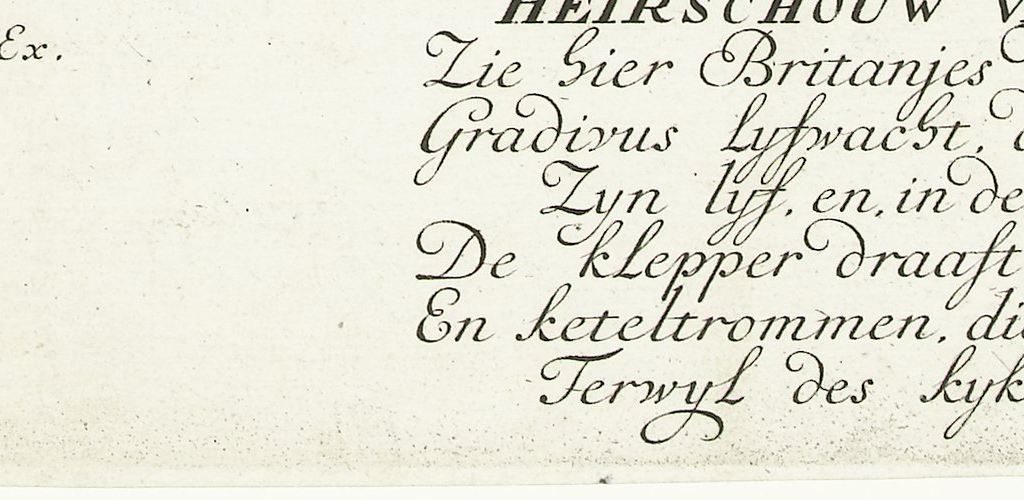 Ex.
HEIRSCHOUW
Zie hier Britanjes
Gradivus lyfwacht,
Zyn lyf, en, in de
De klepper draaft
En keteltrommen, di
Terwyl des kyk